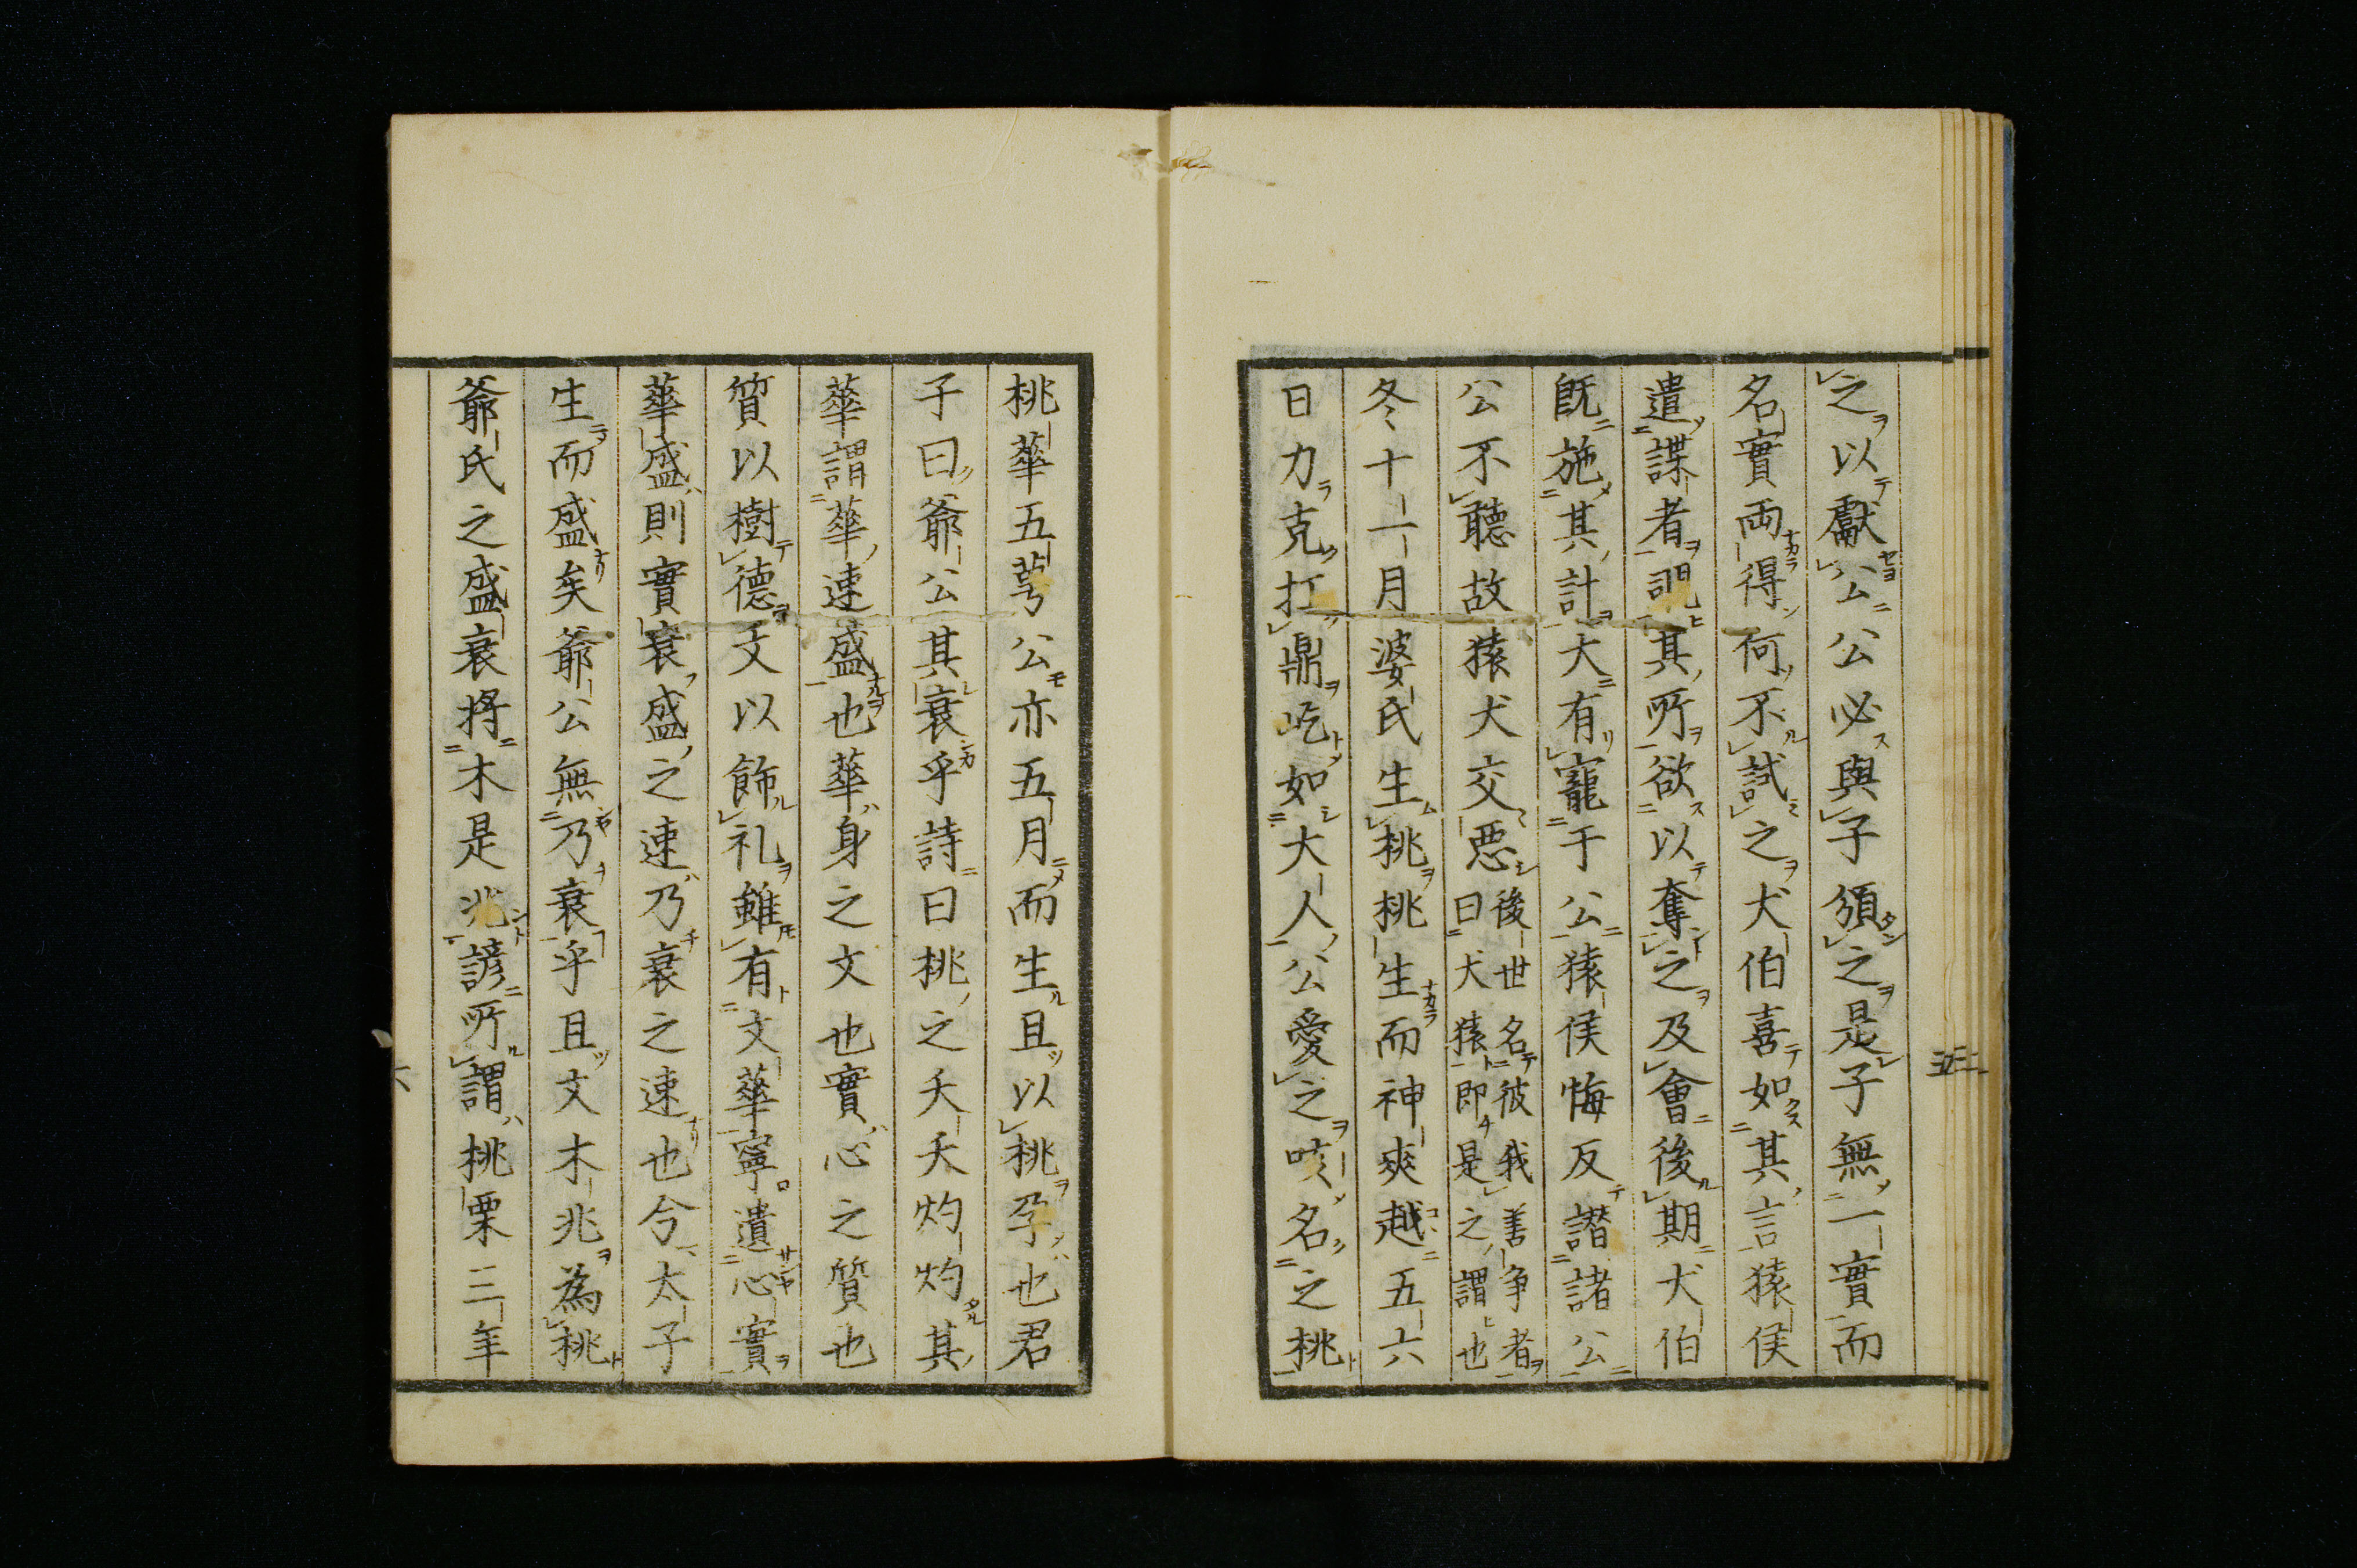 之以獻公公必與子須之是子無一實而
名實両得何不試之犬伯喜如其言猿侯
遣諜者詗其所欲以奪之及會後期犬伯
既施其計大有寵于公猿侯悔反譖諸公
公不聽故猿犬交惡後世名彼我善争者曰犬猿即是之謂也
冬十一月婆氏生桃桃生而神爽越五六
日力克扛鼎屹如大人公愛之咳名之桃
五
桃華五萼公亦五月而生且以桃孕也君
子曰爺公其衰乎詩曰桃之夭夭灼灼其
華謂華速盛也華身之文也實心之質也
質以樹德文以飾礼雖有文華寧遺心實
華盛則實衰盛之速乃衰之速也今太子
生而盛矣爺公無乃衰乎且文木兆為桃
爺氏之盛衰将木是兆諺所謂桃栗三年
六